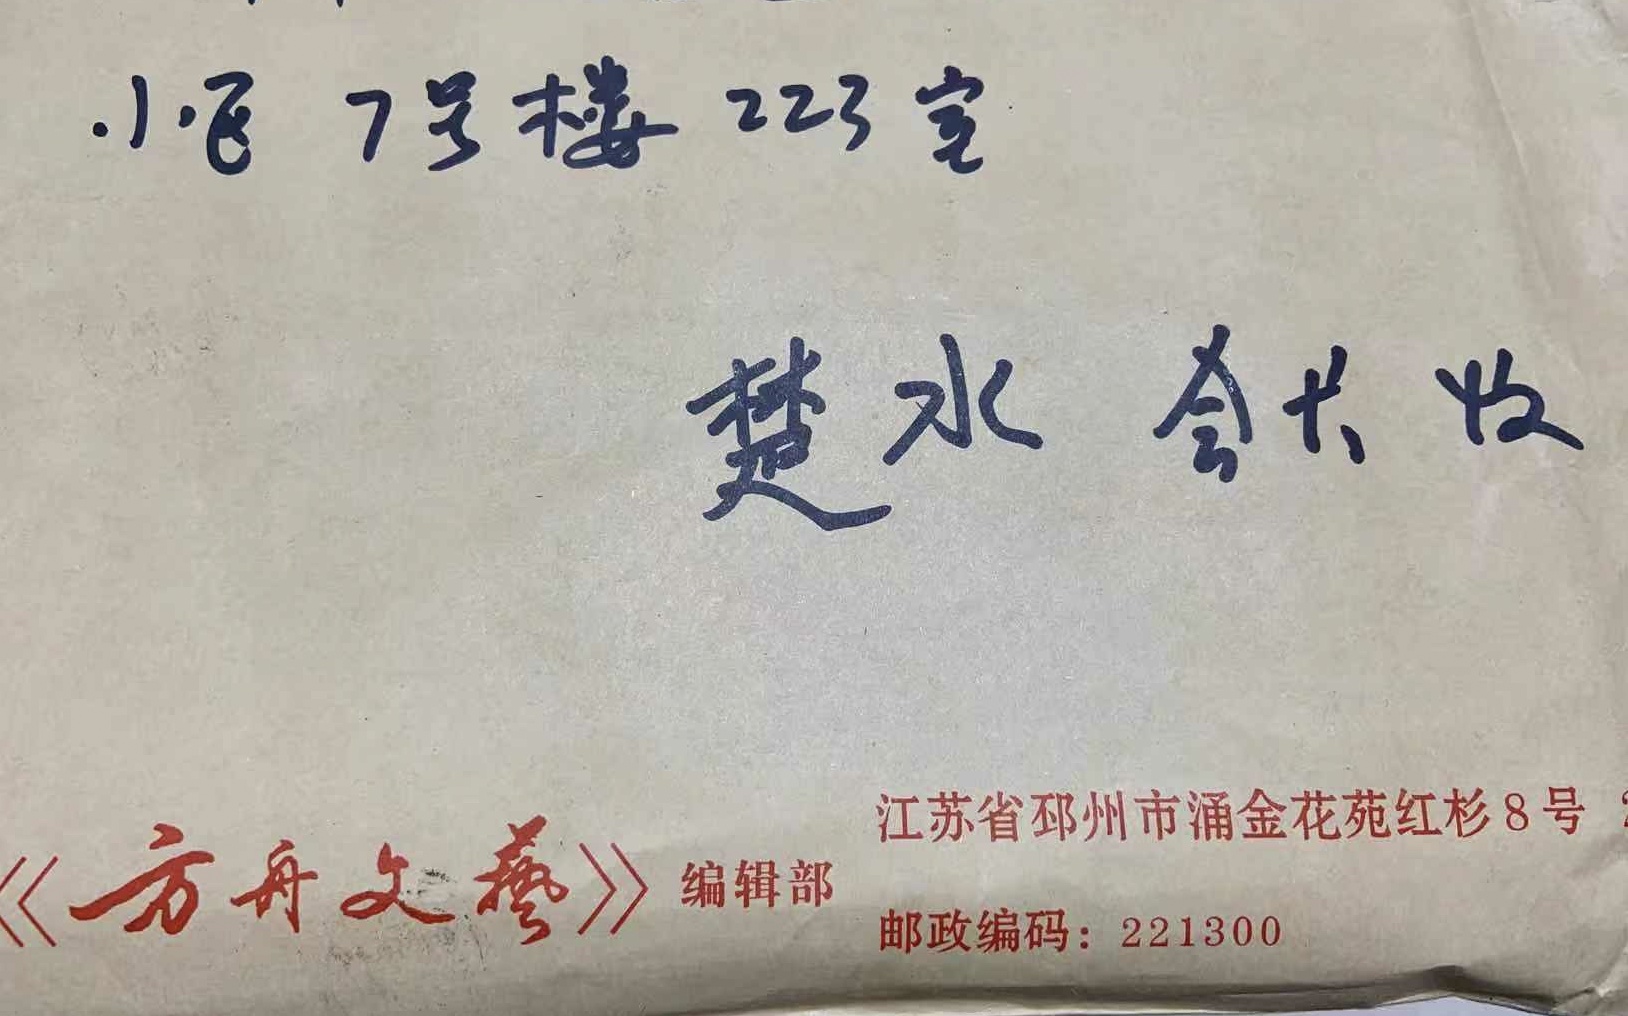 小区 7号楼 223室
楚水 会长 收
江苏省邳州市涌金花苑红杉8号
《方舟文藝》编辑部
邮政编码：221300